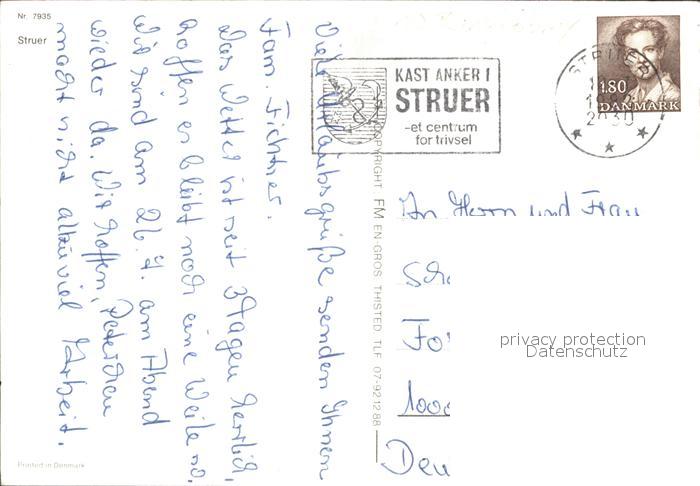 Nr. 7935
Struer
Viele Urlaubsgrüße senden Ihnen
Fam. Fichtner.
Das Wetter ist seit 3 Tagen herrlich,
hoffen es bleibt noch eine Weile so.
Wir sind am 26.7. am Abend
wieder da. Wir hoffen,
macht nicht allzuviel Arbeit.
Printed in Denmark
COPYRIGHT FM EN-GROS THISTED TLF 07-921288
KAST ANKER I
STRUER
-et centrum
for trivsel
STRUER
2030
1.80
DANMARK
An Herrn und Frau
Sch
Fo
1000
Deu
privacy protection
Datenschutz